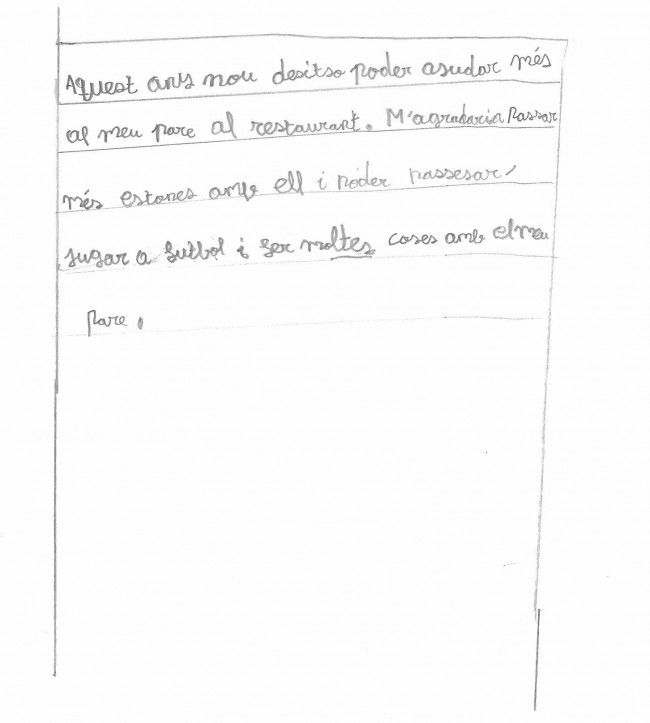 Aquest any nou desitso poder asudar més
al meu pare al restaurant. M'agradaria Passar
més estones amb ell i poder passesar,
jugar a futbol i fer moltes coses amb el meu
pare.